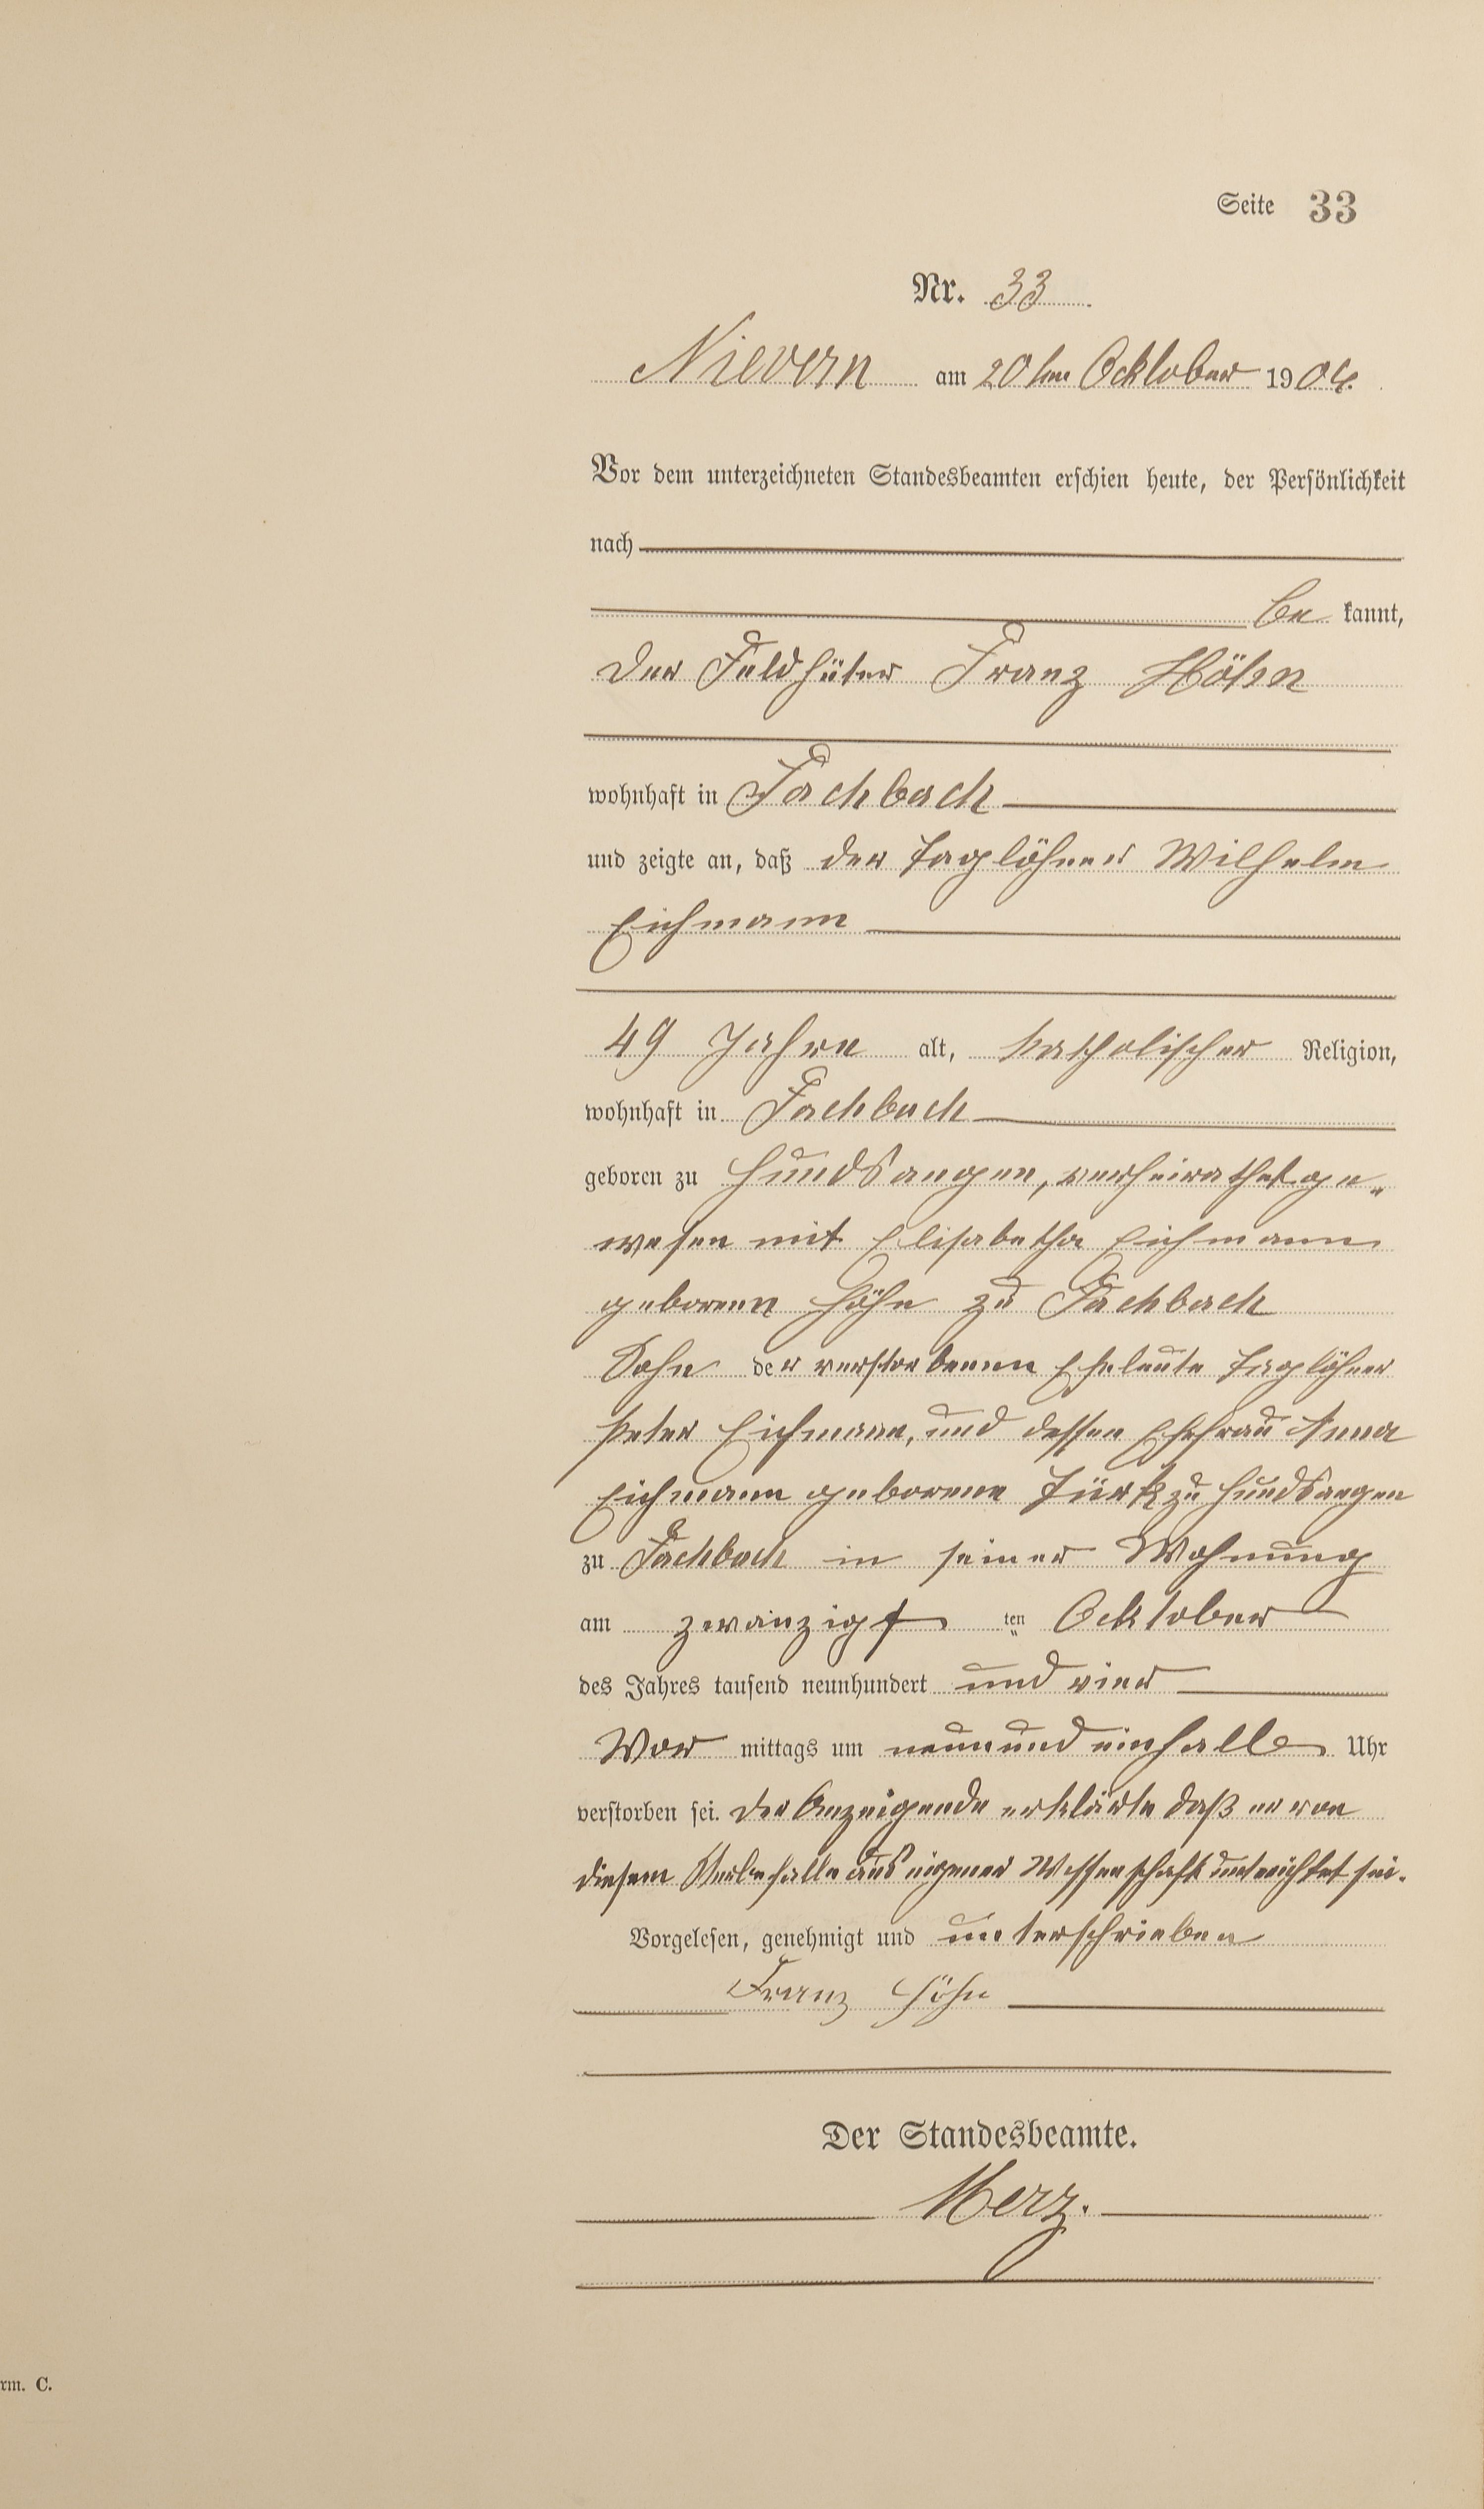 Seite 33
Nr. 33
Nievern am 20ten Ocktober 1904.
Vor dem unterzeichneten Standesbeamten erschien heute, der Persönlichkeit
nach
be kannt,
der Feldhüter Franz Höhn
wohnhaft in Fachbach
und zeigte an, daß der Taglöhner Wilhelm
Eichmann
49 Jahre alt, katholischer Religion,
wohnhaft in Fachbach
geboren zu Hundsangen, verheirathet ge„
wesen mit Elisabetha Eichmann
geborenen Höhn zu Fachbach
Sohn der verstorbenen Eheleute Taglöhner
Peter Eichmann, und dessen Ehefrau Anna
Eichmann geborene Türk zu Hundsangen
zu Fachbach in seiner Wohnung
am zwanzigs ten Ocktober
des Jahres tausend neunhundert und vier
Vor mittags um neunundeinhalb Uhr
verstorben sei. Der Anzeigende erklärte daß er von
diesem Sterbefalle aus eigener Wissenschaft unterrichtet sei.
Vorgelesen, genehmigt und unterschrieben
Franz Höhn
Der Standesbeamte.
Merz.
rm. C.